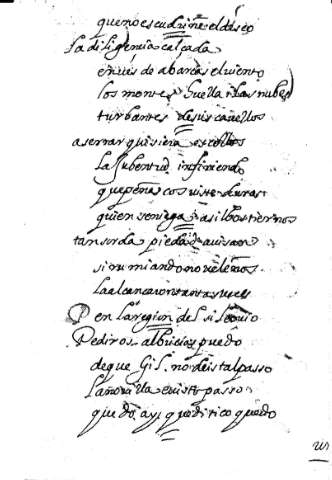 que no escudriñe el deseo
La diligencia calçada
en vés de abarcas el viento
los montes huella i las nubes
turbantes de sus cauellos
a serrar quisiera
La Jubentud infiriendo
que peñascos viste duros
quien se niega a siluos tiernos
tan surda piedad
si rumiando no veleños
La alcançaron tantas veces
en la region del silencio
Pediros albricias puedo
de que Gil. no deis tal paso
La nouilla e visto paso
que dò, ay, quedito quedo